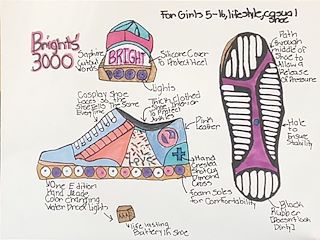 For Girls 5-16, lifestyle, casual
shoe
Brights
3000
Saphire
Cutout
Words
BRIGHT
Silicone Cover
To Protect Heel
Lights
Path
through
middle of
Shoe to
Allow a
Release
of Pressure
Cosplay Shoe
Laces so The
Shoe Fits The Same
Every Time
Thick clothed
Shoe
To Protect
Pink
Leather
LOVE
2
Hole to
Ensure
Stability
One Edition
Hand Made
Color Changing
Water Proof Lights
Hand
Crested
Cut
Diamond
Cross
Foam Soles
for Comfortability
Life lasting
Battery in Shoe
Black
Rubber
Doesn't look
Dirty